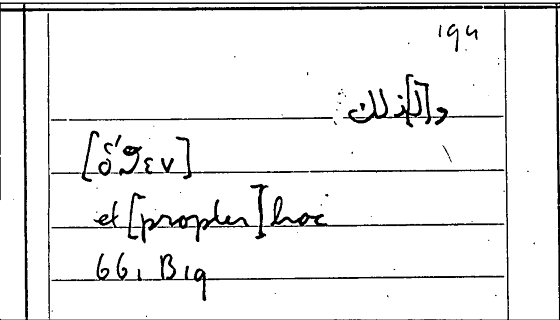 194
و[ل]ذلك
[ὅθεν]
et [propter] hoc
66, B19